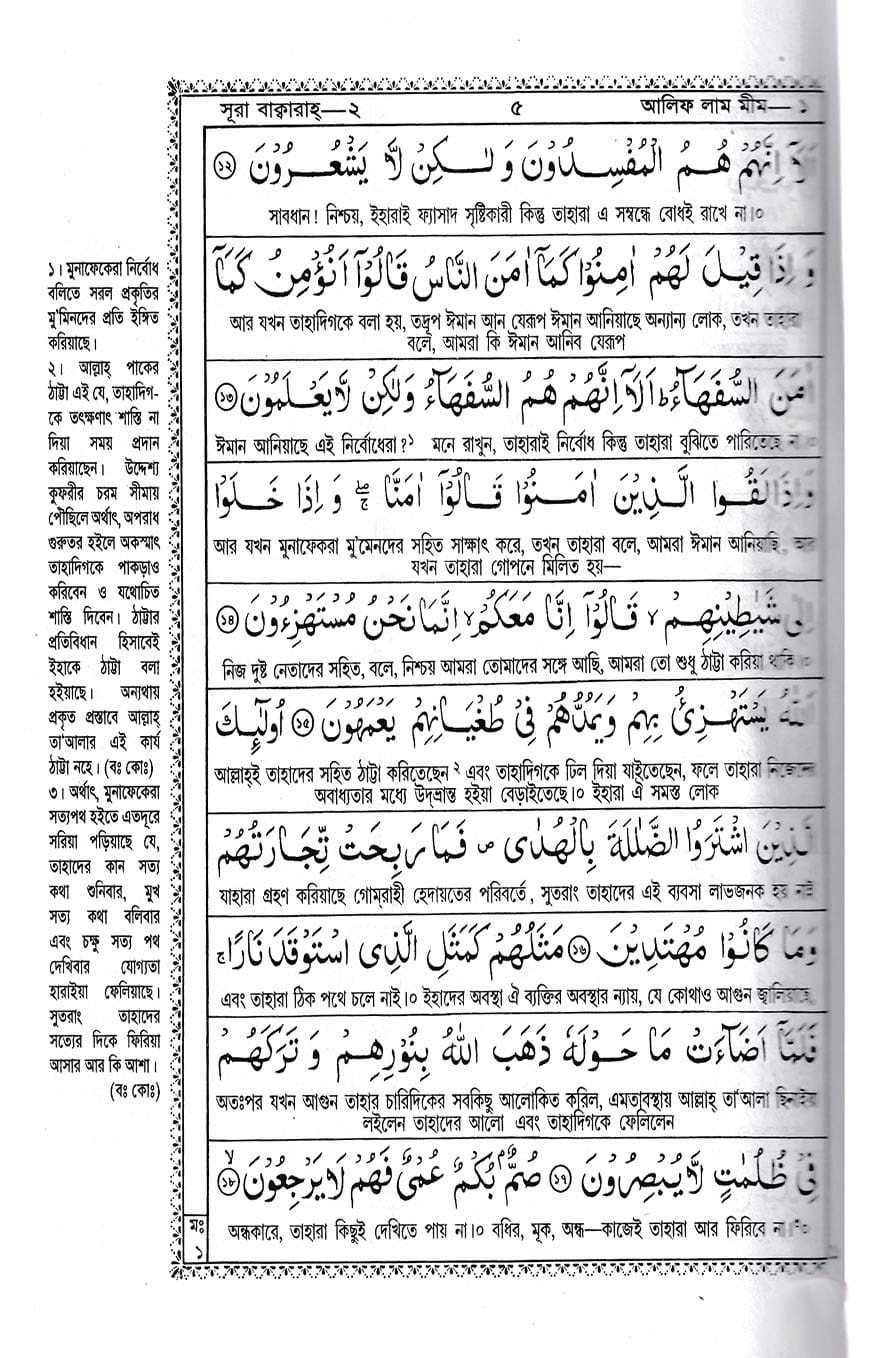 সূরা বাক্বারাহ্—২ ৫ আলিফ লাম মীম—১
اَلَاۤ اِنَّهُمْ هُمُ الْمُفْسِدُوْنَ وَلٰكِنْ لَّا يَشْعُرُوْنَ ⑫
সাবধান! নিশ্চয়, ইহারাই ফ্যাসাদ সৃষ্টিকারী কিন্তু তাহারা এ সম্বন্ধে বোধই রাখে না।০
وَ اِذَا قِيْلَ لَهُمْ اٰمِنُوْا كَمَاۤ اٰمَنَ النَّاسُ قَالُوْۤا اَنُؤْمِنُ كَمَاۤ
আর যখন তাহাদিগকে বলা হয়, তদ্রূপ ঈমান আন যেরূপ ঈমান আনিয়াছে অন্যান্য লোক, তখন তাহারা
বলে, আমরা কি ঈমান আনিব যেরূপ
اٰمَنَ السُّفَهَآءُ ؕ اَلَاۤ اِنَّهُمْ هُمُ السُّفَهَآءُ وَلٰكِنْ لَّا يَعْلَمُوْنَ ⑬
ঈমান আনিয়াছে এই নির্বোধেরা?১ মনে রাখুন, তাহারাই নির্বোধ কিন্তু তাহারা বুঝিতে পারিতেছে না।০
وَ اِذَا لَقُوا الَّذِيْنَ اٰمَنُوْا قَالُوْۤا اٰمَنَّا ۖۚ وَ اِذَا خَلَوْا
আর যখন মুনাফেকরা মু'মেনদের সহিত সাক্ষাৎ করে, তখন তাহারা বলে, আমরা ঈমান আনিয়াছি, আর
যখন তাহারা গোপনে মিলিত হয়—
اِلٰى شَيٰطِيْنِهِمْ ۙ قَالُوْۤا اِنَّا مَعَكُمْ ۙ اِنَّمَا نَحْنُ مُسْتَهْزِءُوْنَ ⑭
নিজ দুষ্ট নেতাদের সহিত, বলে, নিশ্চয় আমরা তোমাদের সঙ্গে আছি, আমরা তো শুধু ঠাট্টা করিয়া থাকি।০
اَللّٰهُ يَسْتَهْزِئُ بِهِمْ وَيَمُدُّهُمْ فِىْ طُغْيَانِهِمْ يَعْمَهُوْنَ ⑮ اُولٰٓئِكَ
আল্লাহ্ই তাহাদের সহিত ঠাট্টা করিতেছেন ২ এবং তাহাদিগকে ঢিল দিয়া যাইতেছেন, ফলে তাহারা নিজেদের
অবাধ্যতার মধ্যে উদ্‌ভ্রান্ত হইয়া বেড়াইতেছে।০ ইহারা ঐ সমস্ত লোক
الَّذِيْنَ اشْتَرَوُا الضَّلٰلَةَ بِالْهُدٰى ۪ فَمَا رَبِحَتْ تِّجَارَتُهُمْ
যাহারা গ্রহণ করিয়াছে গোম্‌রাহী হেদায়তের পরিবর্তে, সুতরাং তাহাদের এই ব্যবসা লাভজনক হয় নাই
وَمَا كَانُوْا مُهْتَدِيْنَ ⑯ مَثَلُهُمْ كَمَثَلِ الَّذِى اسْتَوْقَدَ نَارًا ۚ
এবং তাহারা ঠিক পথে চলে নাই।০ ইহাদের অবস্থা ঐ ব্যক্তির অবস্থার ন্যায়, যে কোথাও আগুন জ্বালিয়াছে
فَلَمَّاۤ اَضَآءَتْ مَا حَوْلَهٗ ذَهَبَ اللّٰهُ بِنُوْرِهِمْ وَ تَرَكَهُمْ
অতঃপর যখন আগুন তাহার চারিদিকের সবকিছু আলোকিত করিল, এমতাবস্থায় আল্লাহ্ তা'আলা ছিনাইয়া
লইলেন তাহাদের আলো এবং তাহাদিগকে ফেলিলেন
فِىْ ظُلُمٰتٍ لَّا يُبْصِرُوْنَ ⑰ صُمٌّۢ بُكْمٌ عُمْىٌ فَهُمْ لَا يَرْجِعُوْنَ ۙ ⑱
অন্ধকারে, তাহারা কিছুই দেখিতে পায় না।০ বধির, মূক, অন্ধ—কাজেই তাহারা আর ফিরিবে না।৩০
মঃ
১
১। মুনাফেকেরা নির্বোধ
বলিতে সরল প্রকৃতির
মু'মিনদের প্রতি ইঙ্গিত
করিয়াছে।
২। আল্লাহ্ পাকের
ঠাট্টা এই যে, তাহাদিগ-
কে তৎক্ষণাৎ শাস্তি না
দিয়া সময় প্রদান
করিয়াছেন। উদ্দেশ্য
কুফরীর চরম সীমায়
পৌঁছিলে অর্থাৎ, অপরাধ
গুরুতর হইলে অকস্মাৎ
তাহাদিগকে পাকড়াও
করিবেন ও যথোচিত
শাস্তি দিবেন। ঠাট্টার
প্রতিবিধান হিসাবেই
ইহাকে ঠাট্টা বলা
হইয়াছে। অন্যথায়
প্রকৃত প্রস্তাবে আল্লাহ্
তা'আলার এই কার্য
ঠাট্টা নহে। (বঃ কোঃ)
৩। অর্থাৎ, মুনাফেকেরা
সত্যপথ হইতে এতদূরে
সরিয়া পড়িয়াছে যে,
তাহাদের কান সত্য
কথা শুনিবার, মুখ
সত্য কথা বলিবার
এবং চক্ষু সত্য পথ
দেখিবার যোগ্যতা
হারাইয়া ফেলিয়াছে।
সুতরাং তাহাদের
সত্যের দিকে ফিরিয়া
আসার আর কি আশা।
(বঃ কোঃ)